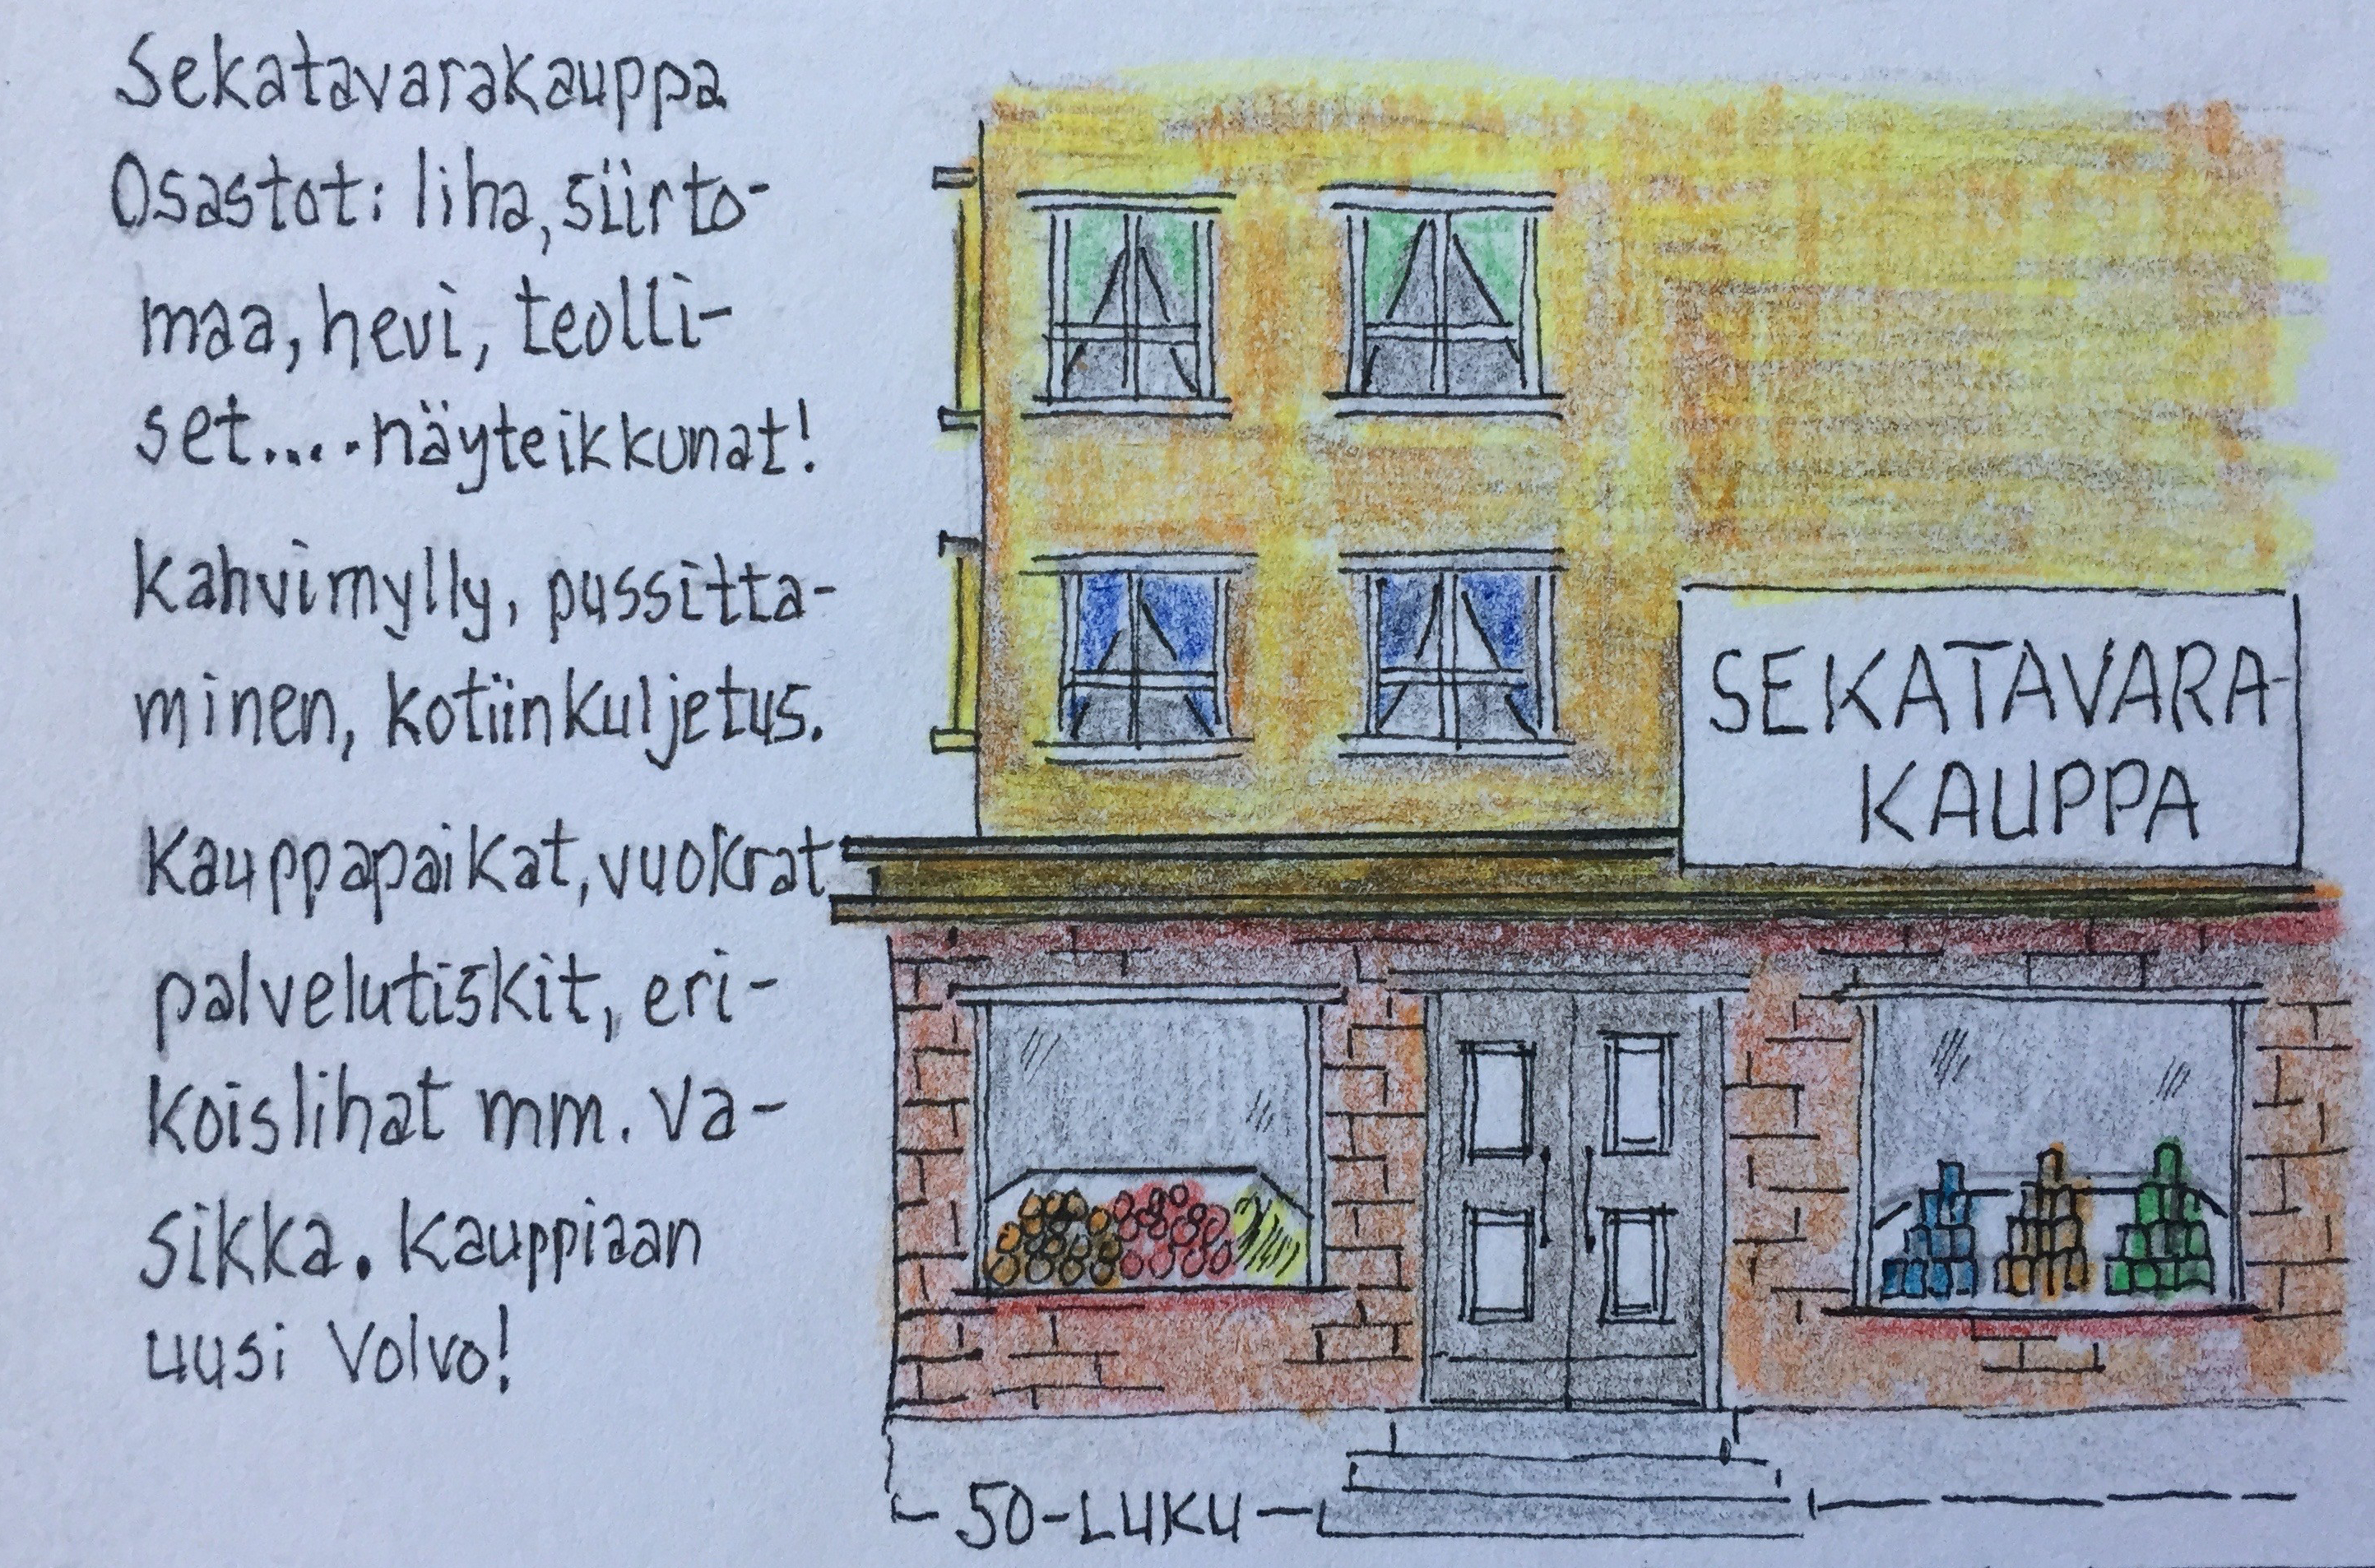 Sekatavarakauppa
Osastot: liha, siirto-
maa, hevi, teolli-
set.... näyteikkunat!
Kahvimylly, pussitta-
minen, kotiinkuljetus.
Kauppapaikat, vuokrat,
palvelutiskit, eri-
koislihat mm. va-
sikka. Kauppiaan
uusi Volvo!
SEKATAVARA-
KAUPPA
50-LUKU